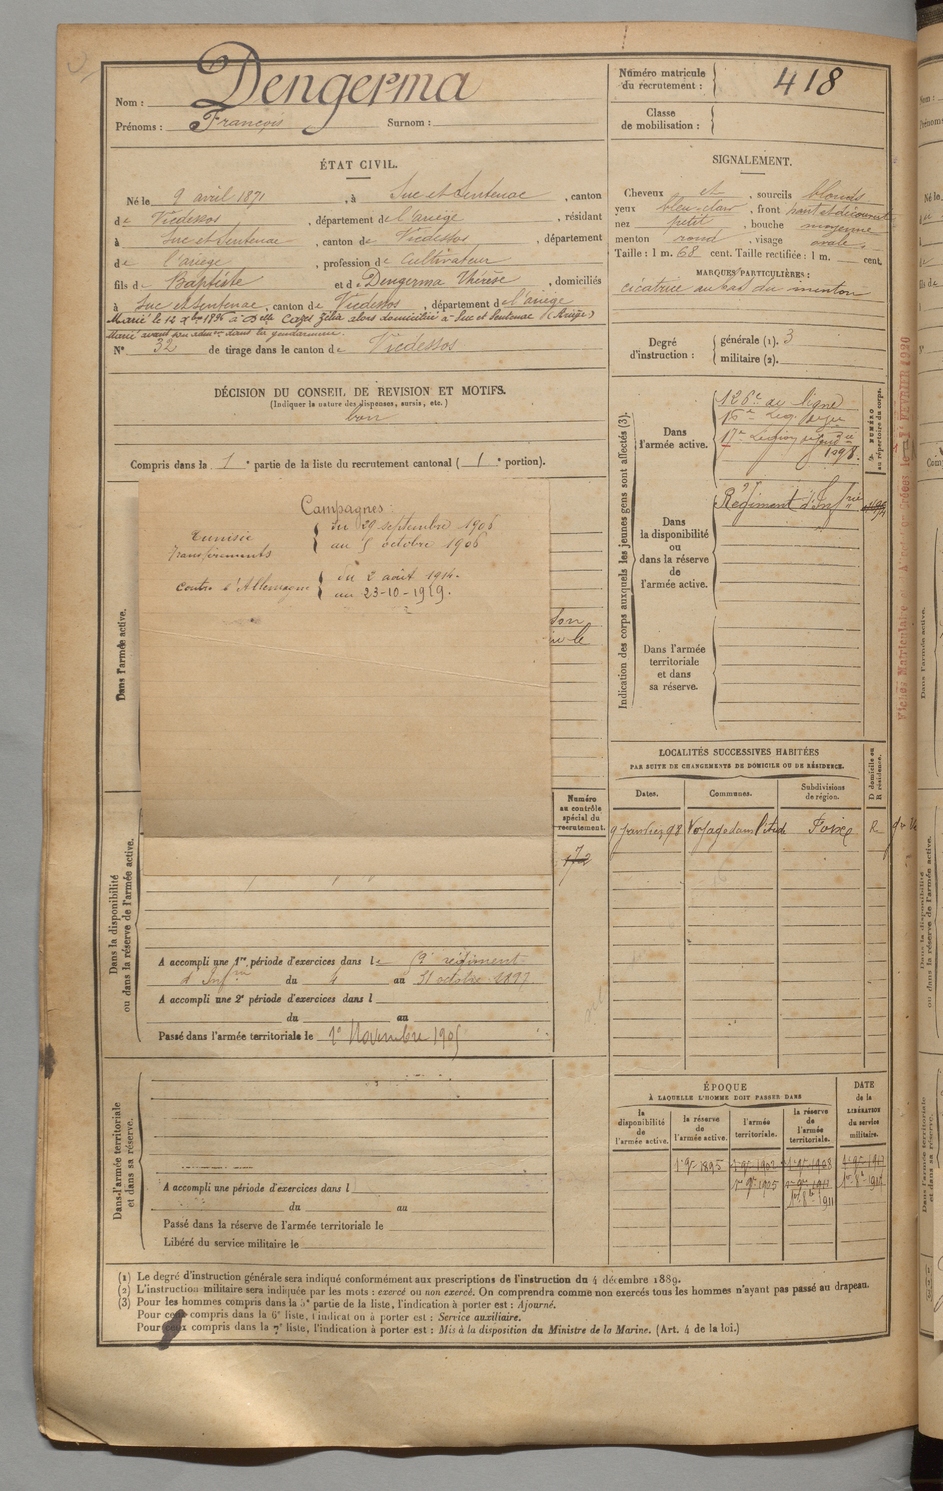 Nom : Dengerma
Prénoms : François Surnom :
Numéro matricule du recrutement : 418
Classe de mobilisation :
ÉTAT CIVIL.
Né le 9 avril 1871, à Suc et Sentenac, canton
de Vicdessos, département de l'ariège, résidant
à Suc et Sentenac, canton de Vicdessos, département
de l'ariège, profession de Cultivateur
fils de Baptiste et de Dengerma Thérèse, domiciliés
à Suc et Sentenac, canton de Vicdessos, département de l'ariège
Marié le 12 Xbre 1896 à Delle Cazes Zélia alors domiciliée à Suc et Sentenac (Ariège)
Marié avant son admon dans la gendarmerie.
N° 32 de tirage dans le canton de Vicdessos
SIGNALEMENT.
Cheveux et, sourcils blonds
yeux bleu-clair, front haut et découvert
nez petit, bouche moyenne
menton rond, visage ovale
Taille : 1 m. 68 cent. Taille rectifiée : 1 m. cent.
MARQUES PARTICULIÈRES :
cicatrice au bas du menton
Degré d'instruction : générale (1). 3
militaire (2).
DÉCISION DU CONSEIL DE REVISION ET MOTIFS.
(Indiquer la nature des dispenses, sursis, etc.)
bon
Compris dans la 1e partie de la liste du recrutement cantonal (1e portion).
Campagnes :
Tunisie du 29 septembre 1906
au 5 octobre 1906
Contre l'Allemagne du 2 août 1914.
au 23-10-1919.
Dans l'armée active.
Indication des corps auxquels les jeunes gens sont affectés (3).
Dans l'armée active.
126e de ligne
17e Légion
1898.
N° NUMÉRO au répertoire du corps.
Dans la disponibilité ou dans la réserve de l'armée active.
Régiment d'Infrie
Dans l'armée territoriale et dans sa réserve.
LOCALITÉS SUCCESSIVES HABITÉES
PAR SUITE DE CHANGEMENTS DE DOMICILE OU DE RÉSIDENCE.
Dates. Communes. Subdivisions de région. D domicile ou R résidence.
9 Janvier 98 Foix R
Numéro au contrôle spécial du recrutement.
172
Dans la disponibilité ou dans la réserve de l'armée active.
A accompli une 1re période d'exercices dans le 59e régiment
d'Infrie du 4 au 31 octobre 1897
A accompli une 2e période d'exercices dans l
du au
Passé dans l'armée territoriale le 1er Novembre 1905
Dans l'armée territoriale et dans sa réserve.
A accompli une période d'exercices dans l
du au
Passé dans la réserve de l'armée territoriale le
Libéré du service militaire le
ÉPOQUE
À LAQUELLE L'HOMME DOIT PASSER DANS
la disponibilité de l'armée active.
la réserve de l'armée active.
l'armée territoriale.
la réserve de l'armée territoriale.
DATE de la LIBÉRATION du service militaire.
1er 9bre 1895 1er 9bre 1902 1er 9bre 1908 1er 9bre 1917
1er 9bre 1905 1er 9bre 1911 1er 8bre 1917
1er 8bre 1911
(1) Le degré d'instruction générale sera indiqué conformément aux prescriptions de l'instruction du 4 décembre 1889.
(2) L'instruction militaire sera indiquée par les mots : exercé ou non exercé. On comprendra comme non exercés tous les hommes n'ayant pas passé au drapeau.
(3) Pour les hommes compris dans la 5e partie de la liste, l'indication à porter est : Ajourné.
Pour ceux compris dans la 6e liste, l'indication à porter est : Service auxiliaire.
Pour ceux compris dans la 7e liste, l'indication à porter est : Mis à la disposition du Ministre de la Marine. (Art. 4 de la loi.)